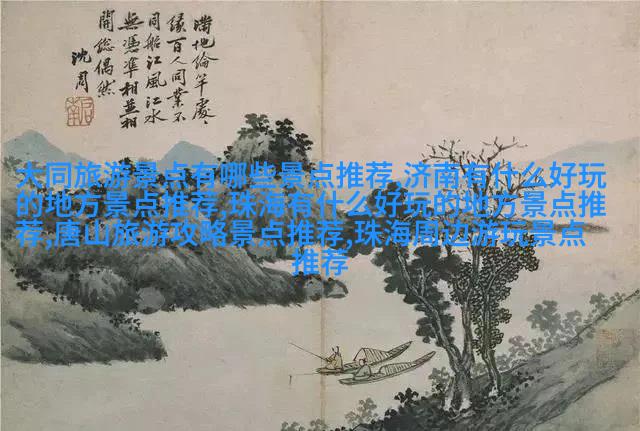 滿地綸竿處〻
緣百人同業不
同船江風江水
無憑準相並相
開總偶然
沈周
大同旅游景点有哪些景点推荐,济南有什么好玩
的地方景点推荐,珠海有什么好玩的地方景点推
荐,唐山旅游攻略景点推荐,珠海周边游玩景点
推荐